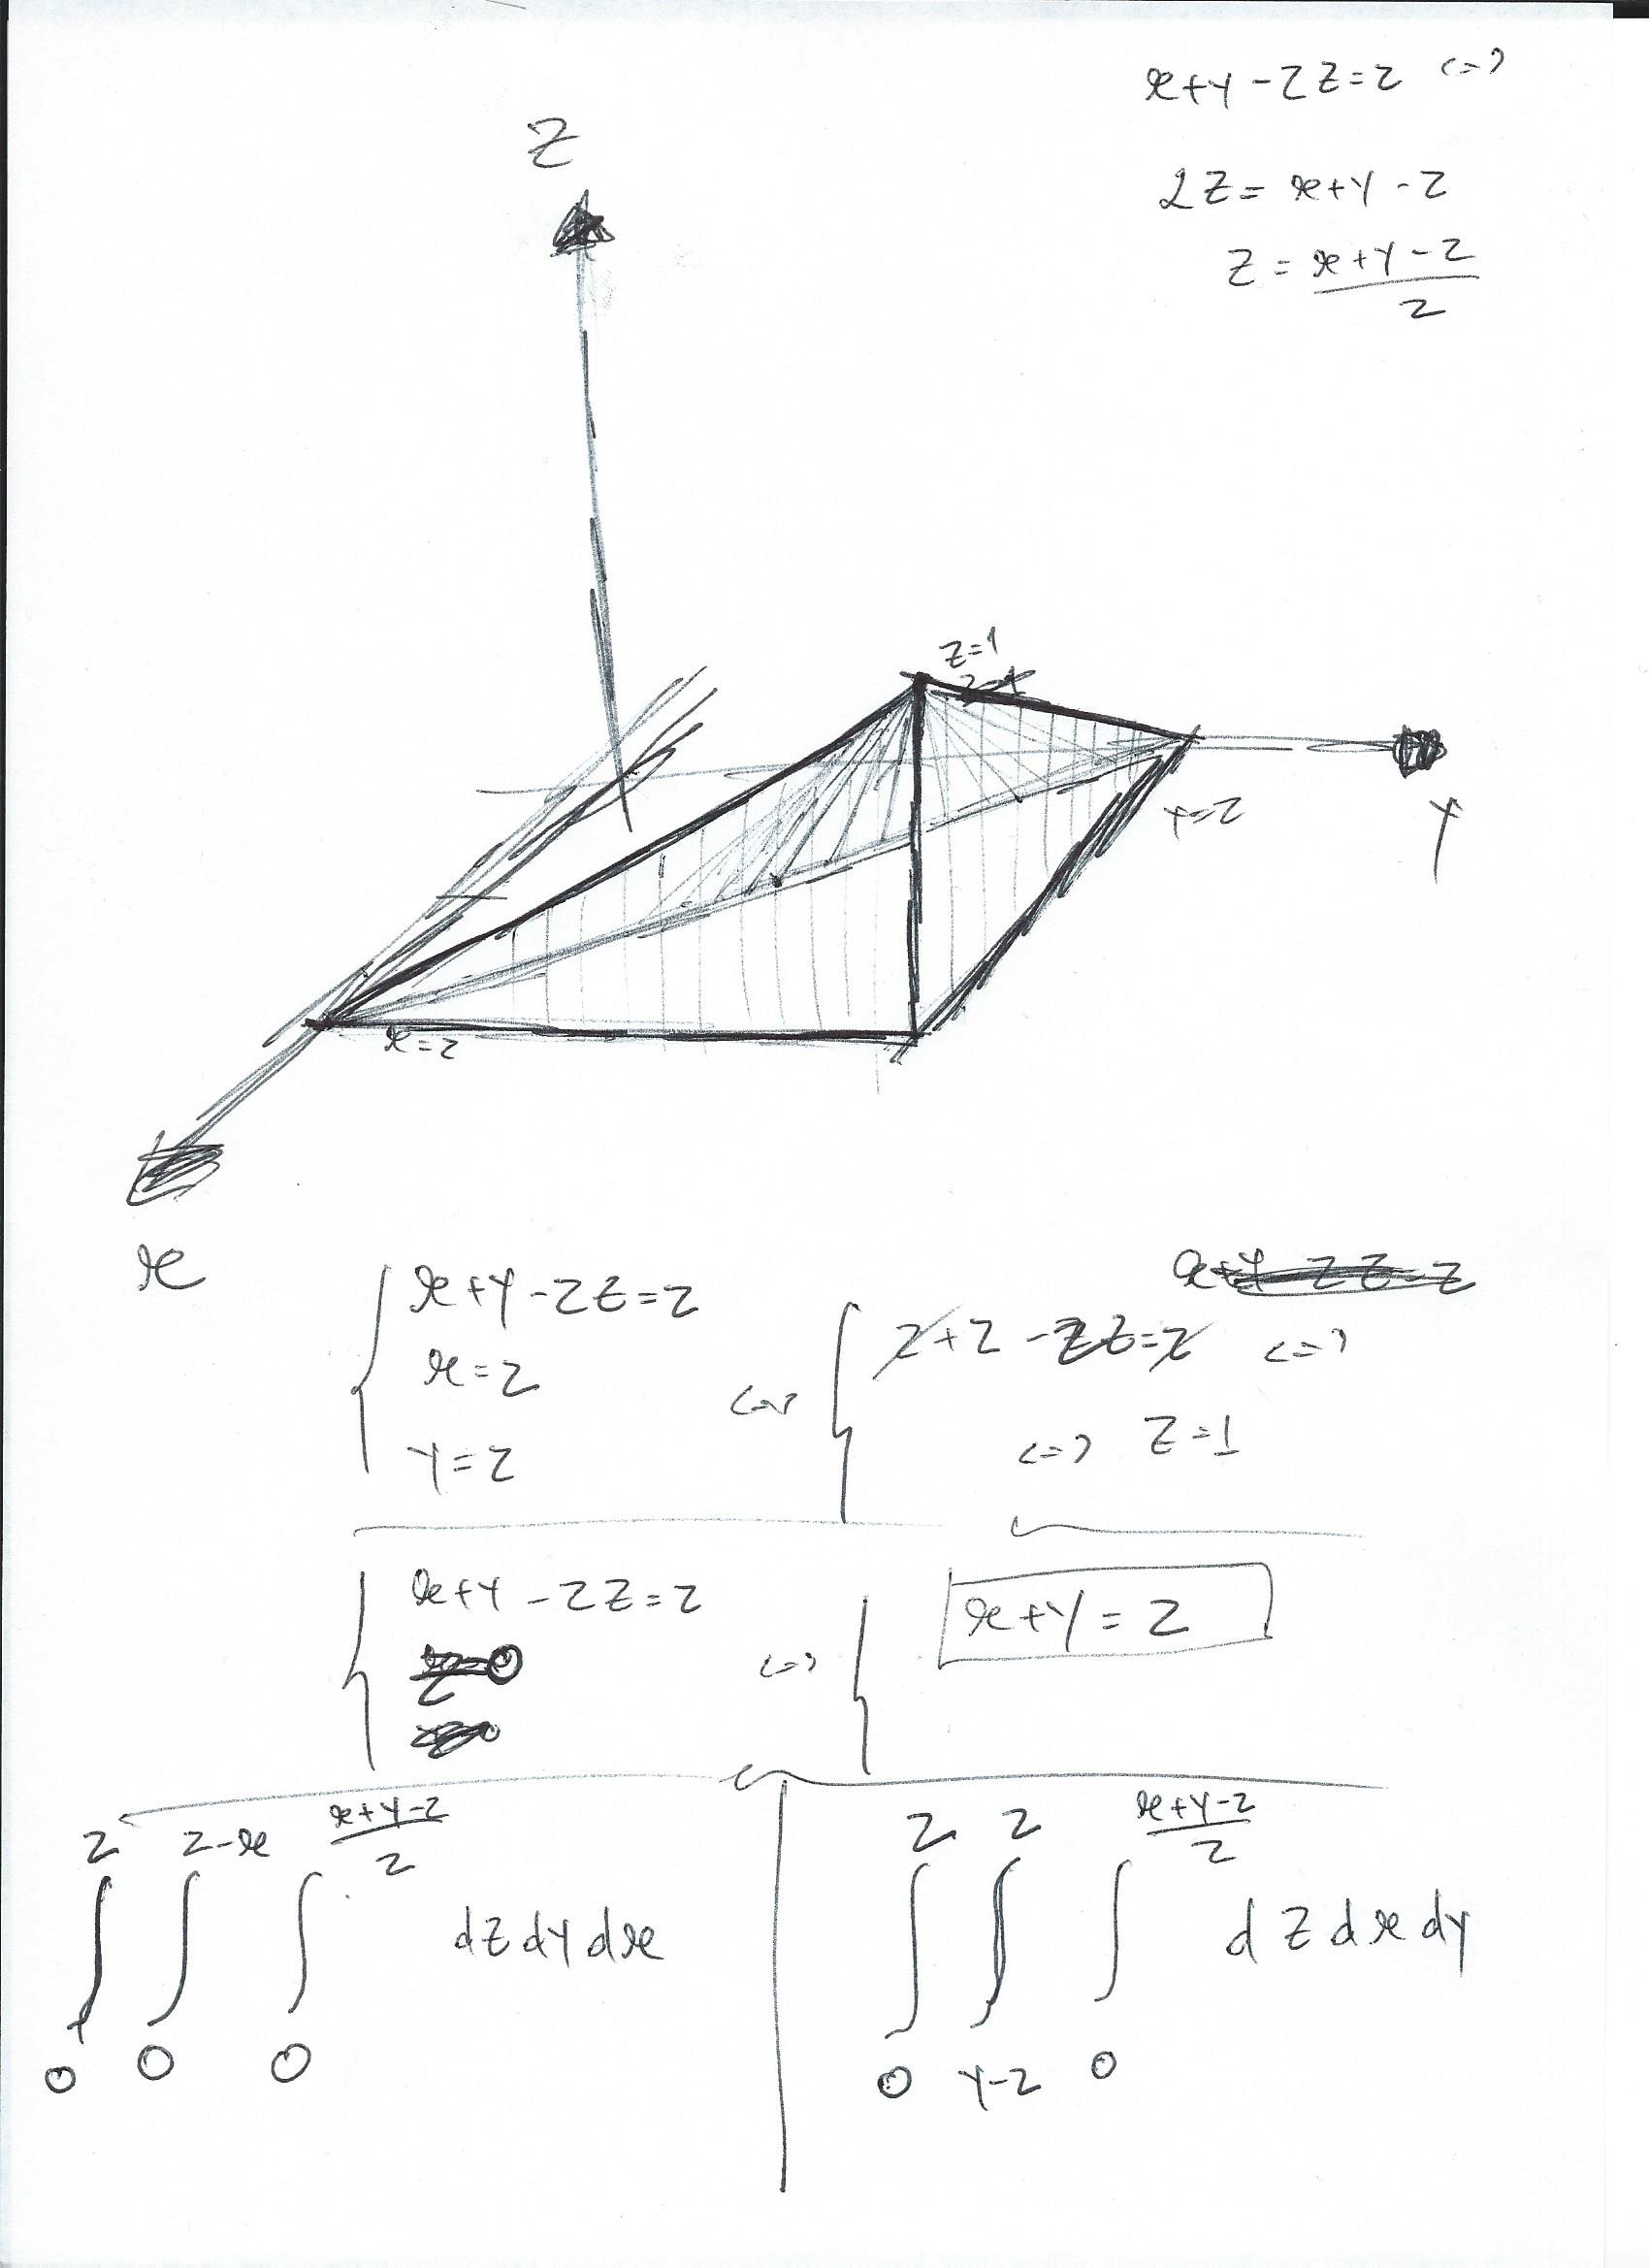 x+y-2z=2 <=>
2z= x+y-2
z = x+y-2
2
z
z=1
y=2
y
x=2
x
x+y-2z=2
x=2
y=2
<=>
2+2-2z=2 <=>
<=> z=1
x+y-2z=2
<=>
x+y=2
2 2-x x+y-2
2
∫ ∫ ∫ dz dy dx
0 0 0
2 2 x+y-2
2
∫ ∫ ∫ dz dx dy
0 y-2 0